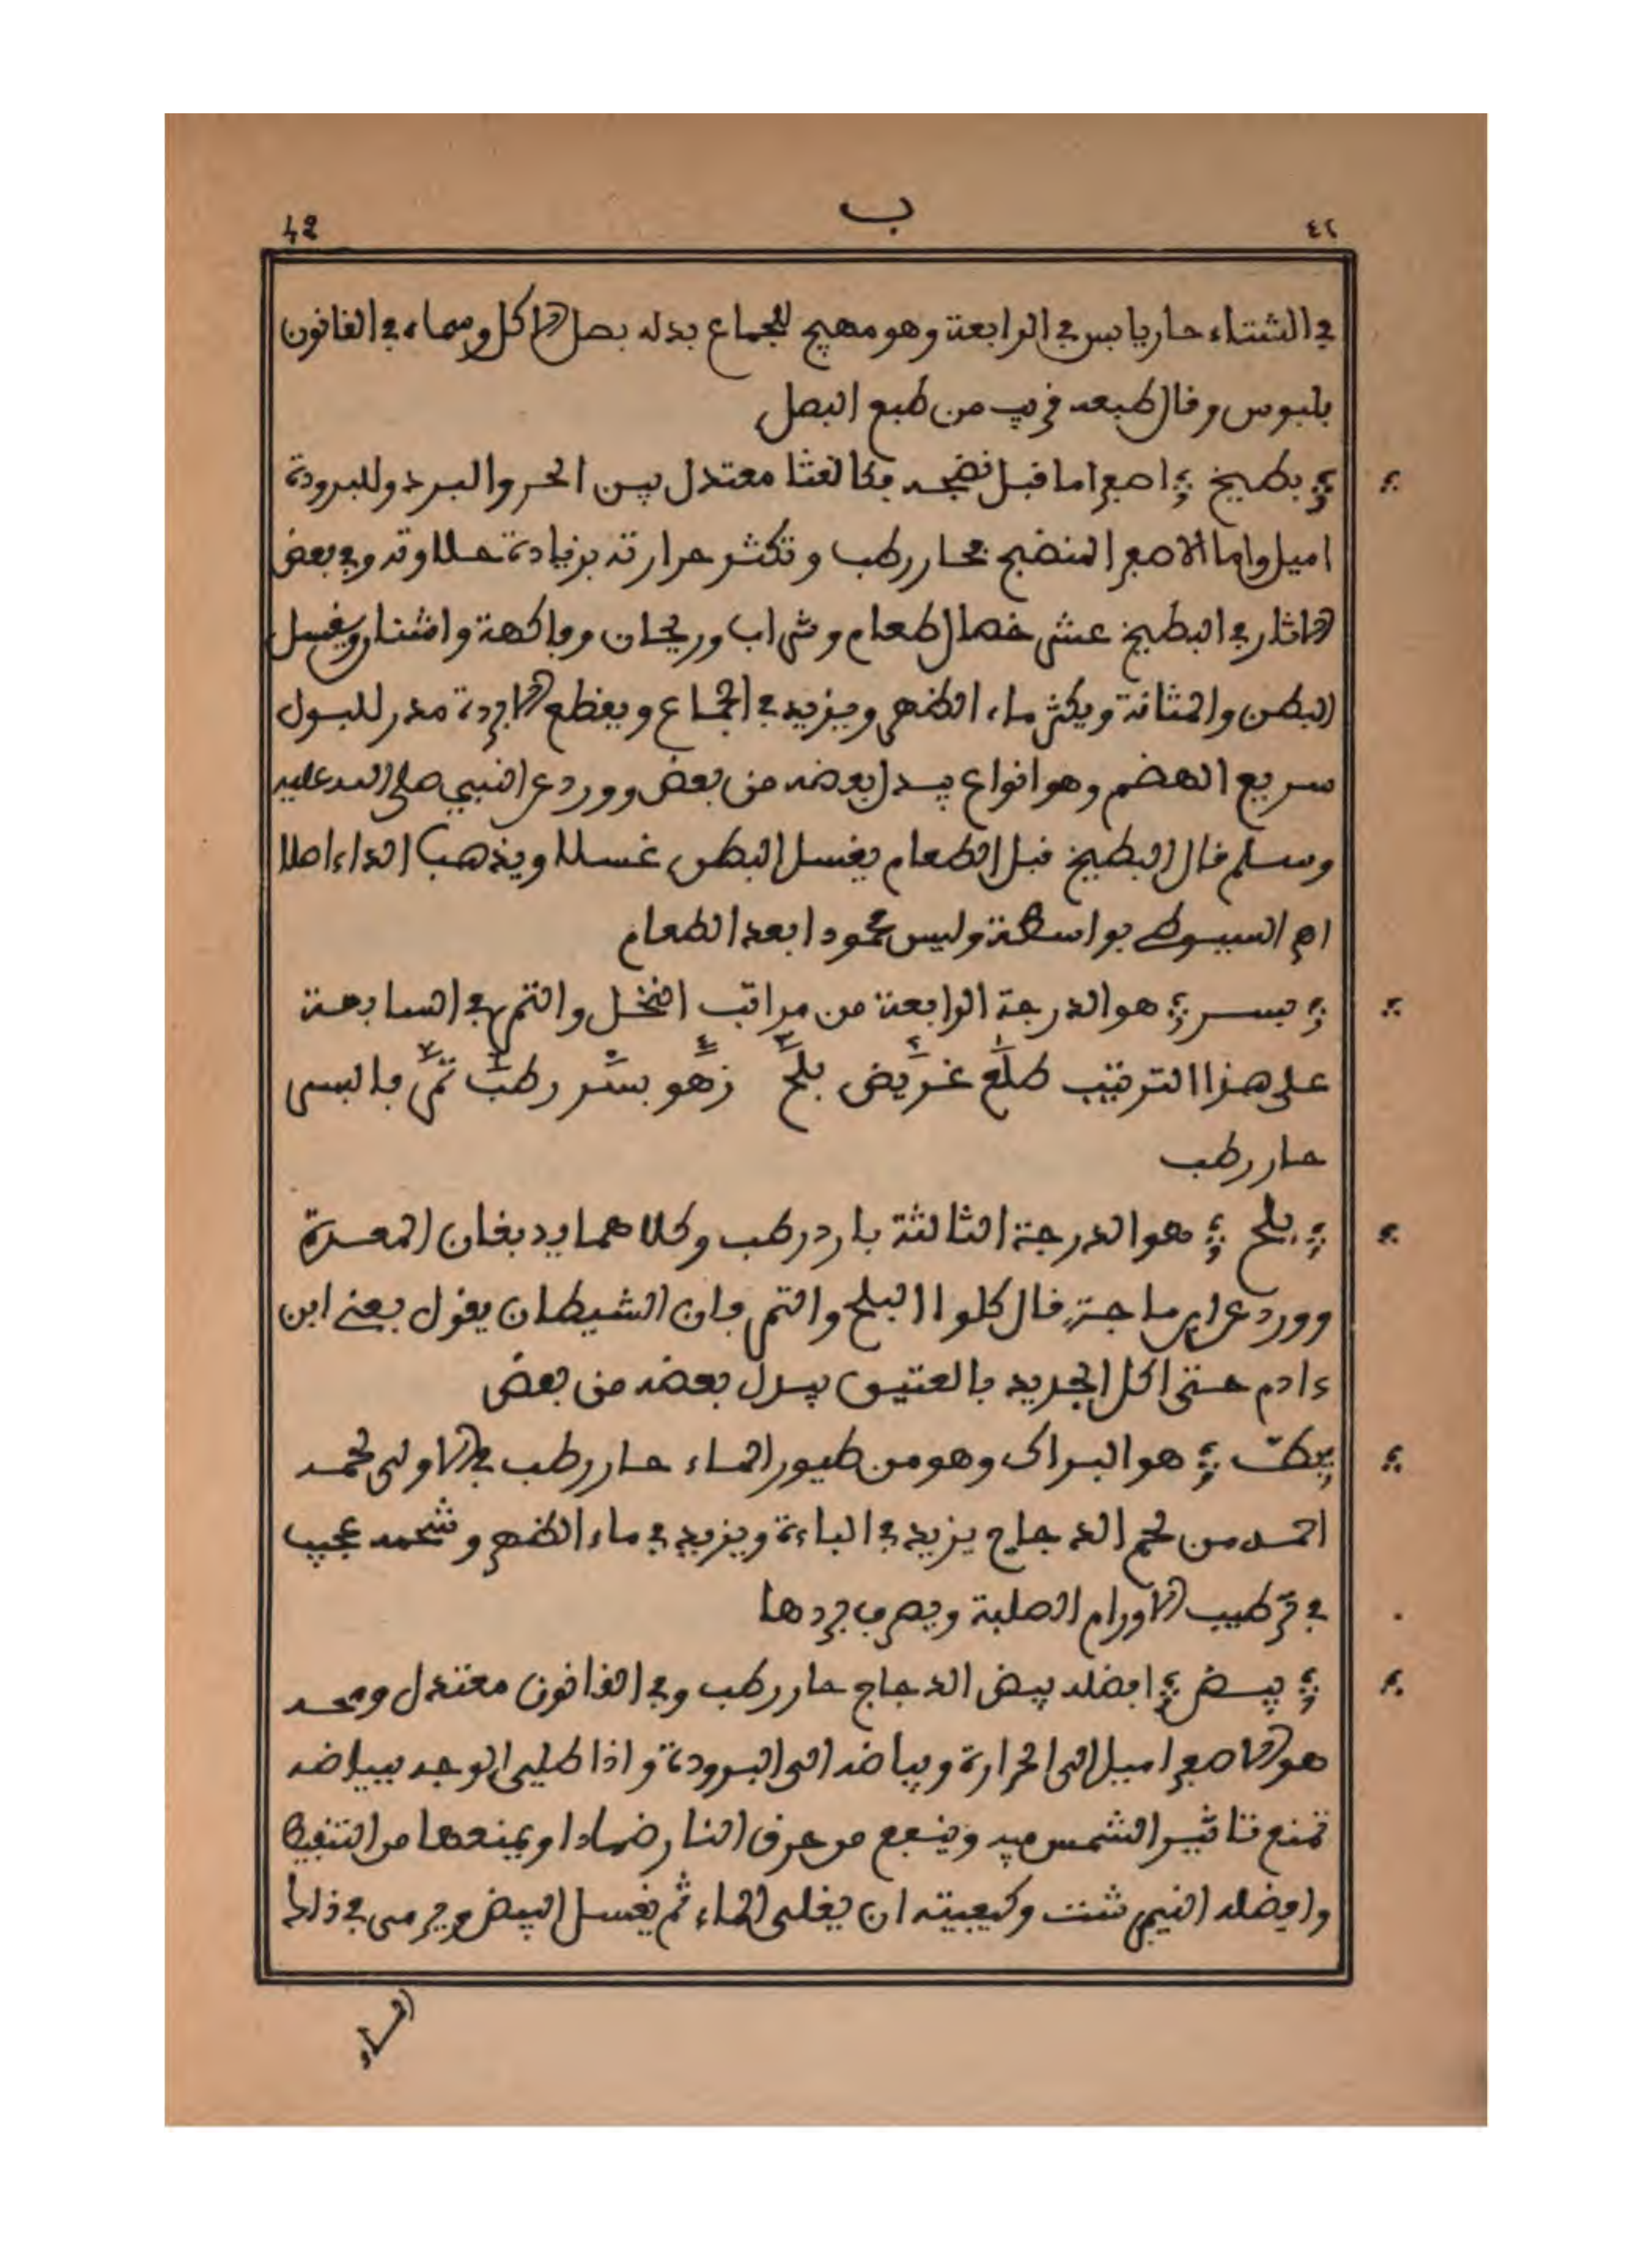 42
ب
٤٢
في الشتاء حار يابس في الرابعة وهو مهيج للجماع بدله بصل الاكل وسماه في القانون
بلبوس وقال طبعه قريب من طبع البصل
بطيخ اصفر اما قبل نضجه فكالقثا معتدل بين الحر والبرد وللبرودة
اميل واما الاصفر المنضج فحار رطب وتكثر حرارته بزيادة حلاوته وفي بعض
الاثار في البطيخ عشر خصال طعام وشراب وريحان وفاكهة واشنان ويغسل
البطن والمثانة ويكثر ماء الظهر ويزيد في الجماع ويقطع الابردة مدر للبول
سريع الهضم وهو انواع يبدل بعضه من بعض وورد عن النبي صلى الله عليه
وسلم قال البطيخ قبل الطعام يغسل البطن غسلا ويذهب الداء اصلا
اه السيوطي بواسطة وليس محمودا بعد الطعام
بسر هو الدرجة الرابعة من مراتب النخل والتمر في السابعة
على هذا الترتيب طلع غريض بلح زهو بسر رطب تمر فالبسر
حار رطب
بلح هو الدرجة الثالثة بارد رطب وكلاهما يدبغان المعدة
وورد عن ابن ماجة قال كلوا البلح والتمر فان الشيطان يقول بقي ابن
ءادم حتى اكل الجديد بالعتيق يبدل بعضه من بعض
بط هو البراك وهو من طيور الماء حار رطب في الاولى لحمه
احمد من لحم الدجاج يزيد في الباءة ويزيد في ماء الظهر وشحمه عجيب
في ترطيب الاورام الصلبة ويصرف بردها
بيض افضله بيض الدجاج حار رطب وفي القانون معتدل ومحه
هو الاصفر اميل الى الحرارة وبياضه الى البرودة واذا طلي الوجه ببياضه
تمنع تاثير الشمس فيه وينفع من حرق النار ضمادا ويمنعها من التنفيط
وافضله النيمرشت وكيفيته ان يغلى الماء ثم يغسل البيض ويرمى في ذلك
الماء